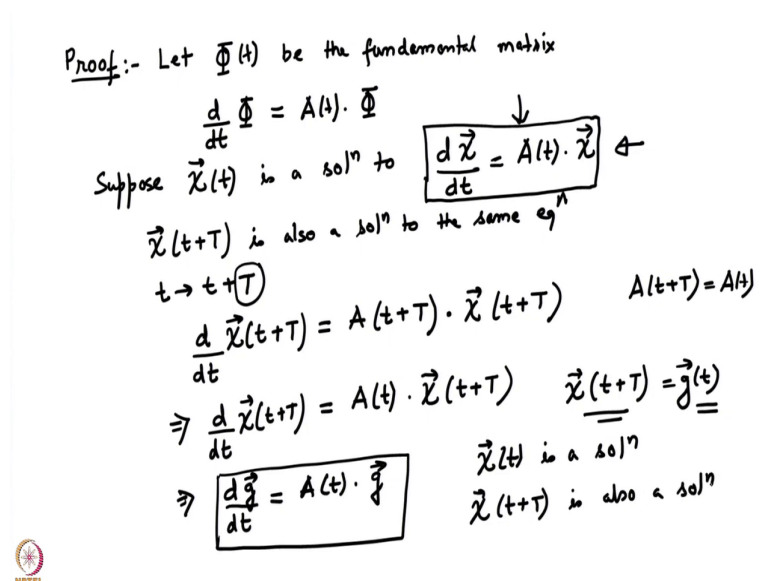 Proof:- Let Φ(t) be the fundamental matrix
d/dt Φ = A(t). Φ
Suppose x⃗(t) is a solⁿ to dx⃗/dt = A(t). x⃗ ←
x⃗(t+T) is also a solⁿ to the same eqⁿ
t → t + T
d/dt x⃗(t+T) = A(t+T). x⃗(t+T) A(t+T) = A(t)
⇒ d/dt x⃗(t+T) = A(t). x⃗(t+T) x⃗(t+T) = g⃗(t)
x⃗(t) is a solⁿ
⇒ dg⃗/dt = A(t). g⃗
x⃗(t+T) is also a solⁿ